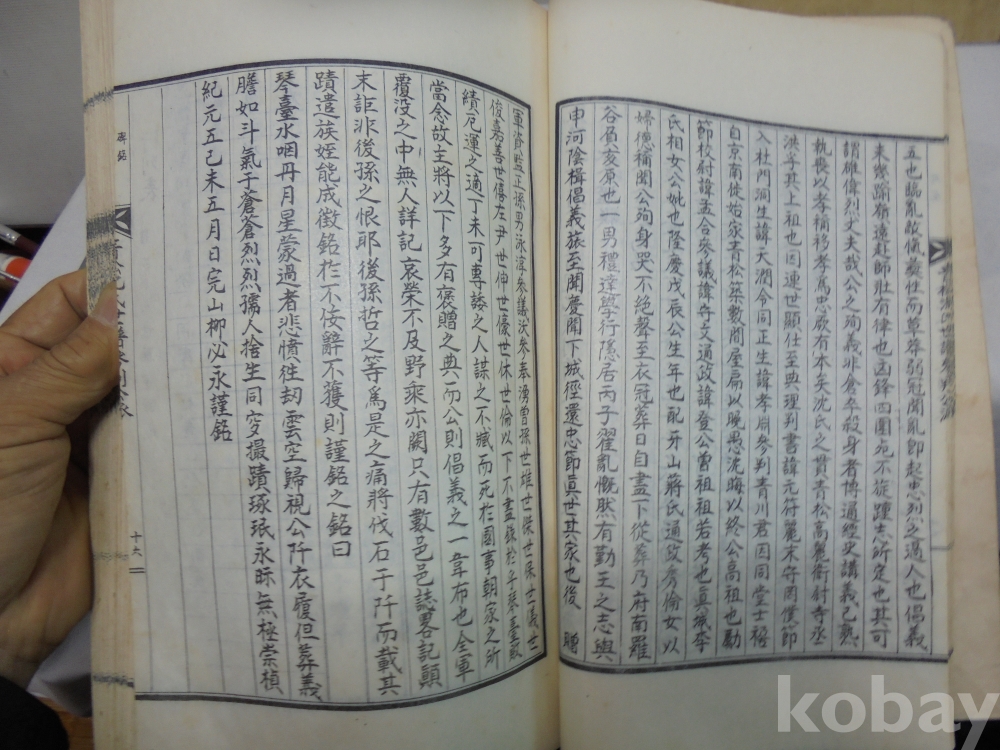 五也臨亂敢慨蔑性而草萃弱冠聞亂卽起忠烈之過人也倡義
未幾踰嶺遠赴師壯有律也凶鋒四圍宛不旋踵志所定也其可
謂雄偉烈丈夫哉公之殉義非倉卒殺身者博通經史講義已熟
執喪以孝稱移孝爲忠厥有本矣沈氏之貫靑松高麗衛尉寺丞
洪孚其上祖也因連世顯仕至典理判書諱元符麗末守罔僕節
入杜門洞生諱天潤令同正生諱孝尙參判靑川君因同堂士
自京南徙始家靑松築數間屋扁以晩愚沈晦以終公高祖也勵
節校尉諱孟合參議諱卉文通政諱登公曾祖祖若考也眞城李
氏相女公妣也隆慶戊辰公生年也配牙山蔣氏通政彦倫女以
婦德稱聞公殉身哭不絶聲至衣冠葬日自盡下從葬乃府南羅
谷負亥原也一男禮達學行隱居丙子濯亂慨然有勤王之志與
申河陰楫倡義旅至聞慶聞下城徑還忠節眞世其家也後 贈
軍資監正孫男泳淳參議次參奉湧曾孫世雄世傑世保世義世
俊嘉善世僖左尹世伸世優世休世倫以下不盡錄於乎琴臺敗
績厄運之適丁未可專諉之人謀之不臧而死於國事朝家之所
當念故主將以下多有褒贈之典而公則倡義之一韋布也全軍
覆没之中無人詳記哀榮不及野乘亦闕只有數邑邑誌畧記顯
末詎非後孫之恨耶後孫哲之等爲是之痛將伐石于阡而載其
蹟遣族姪能成徵銘於不佞辭不獲則謹銘之銘曰
琴臺水咽丹月星蒙過者悲憤徃刼雲空歸視公阡衣履但葬義
膽如斗氣于蒼蒼烈烈孺人捨生同穸撮蹟琢珉永眎無極崇禎
紀元五己未五月日完山柳必永謹銘
碑銘
十六
kobay